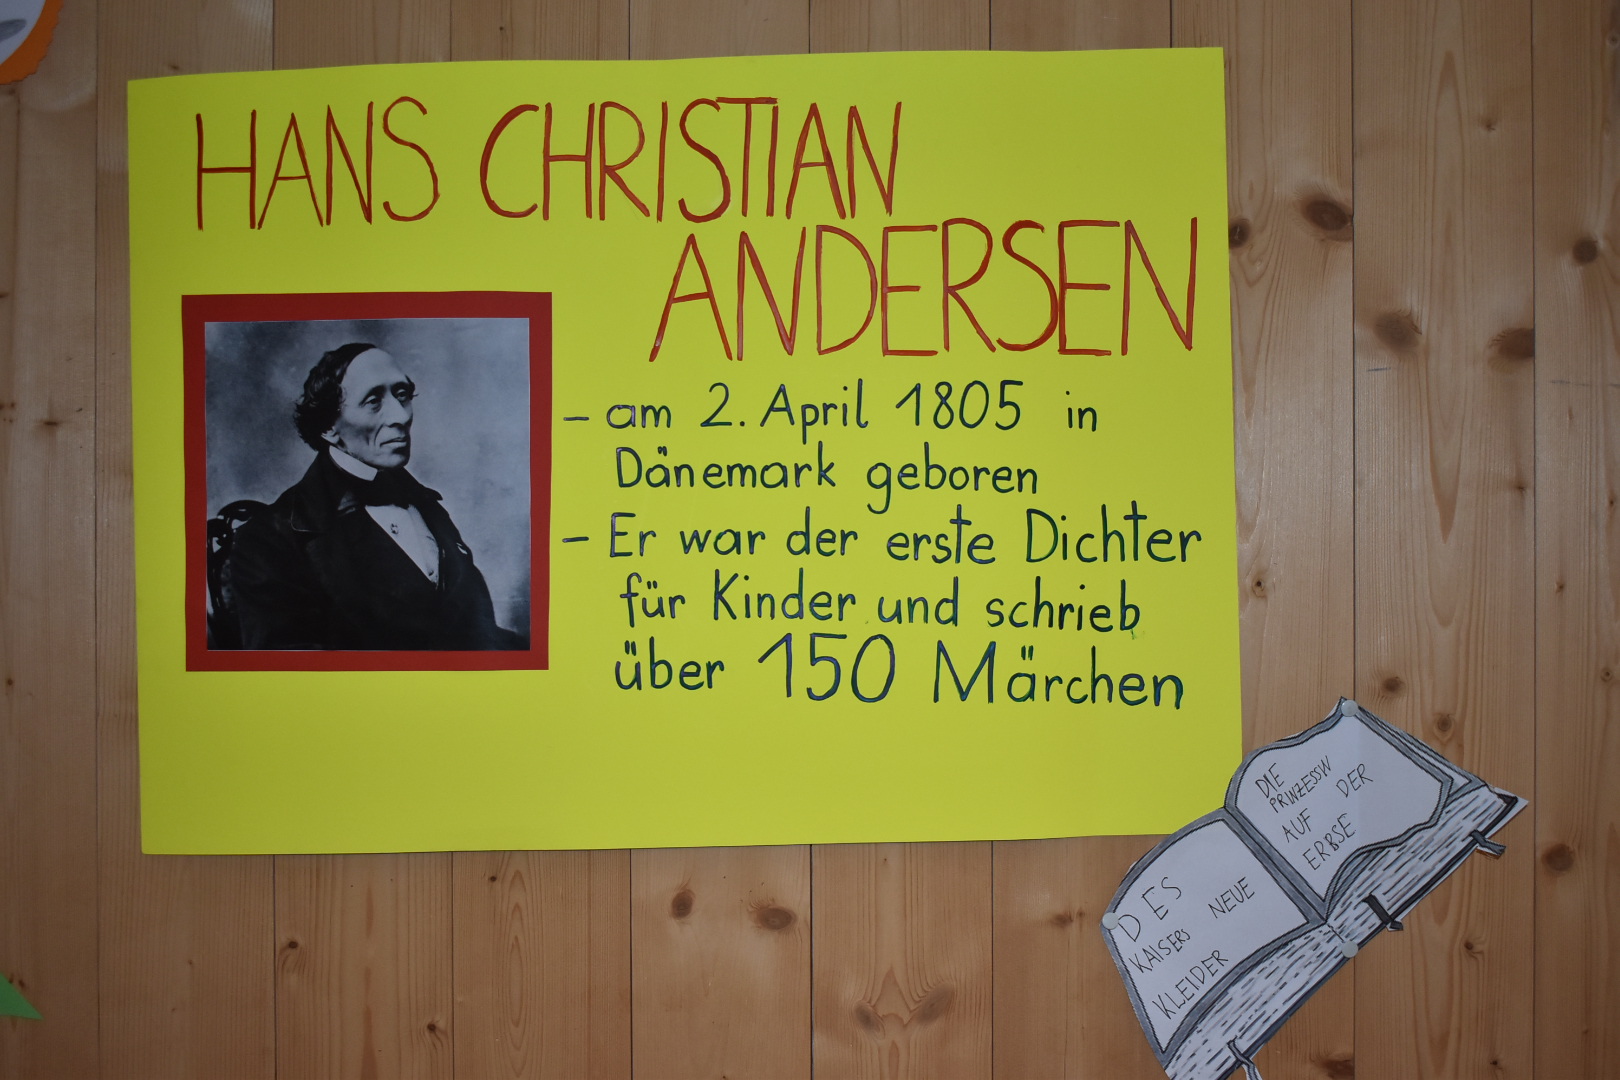 HANS CHRISTIAN
ANDERSEN
– am 2. April 1805 in
Dänemark geboren
– Er war der erste Dichter
für Kinder und schrieb
über 150 Märchen
DES
KAISERS NEUE
KLEIDER
DIE
PRINZESSIN
AUF DER
ERBSE